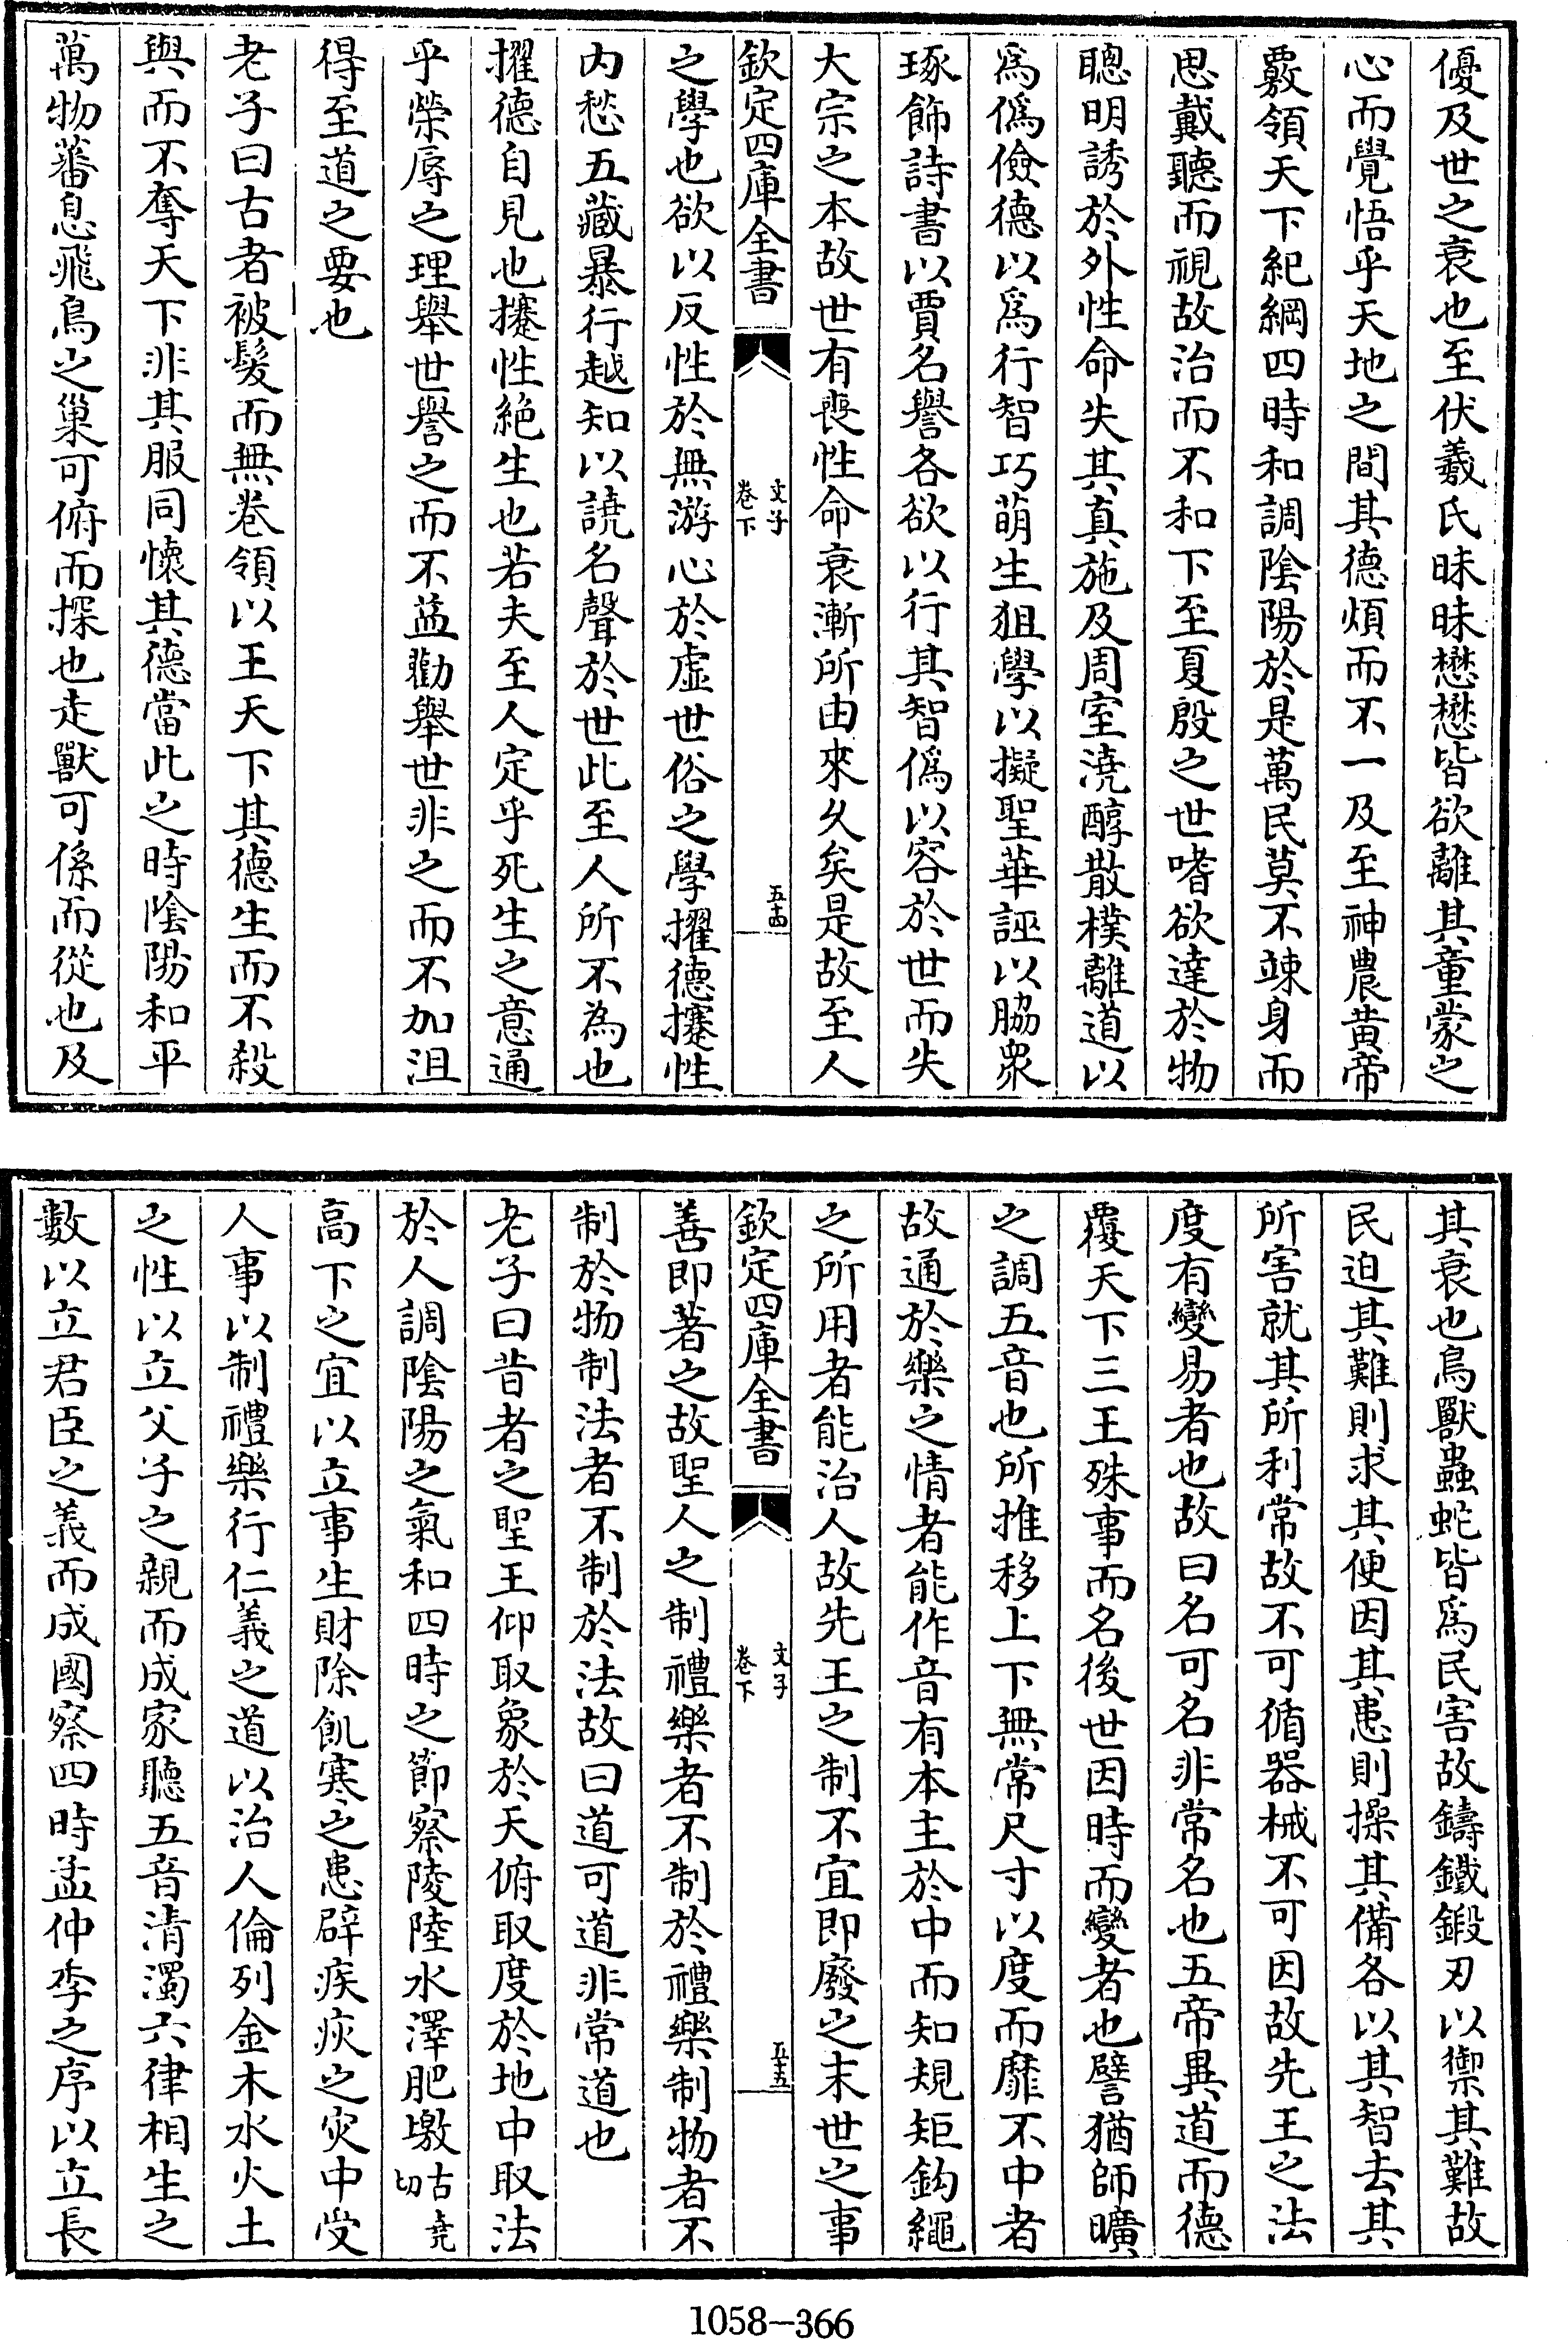 優及世之衰也至伏羲氏昧昧懋懋皆欲離其童蒙之
心而覺悟乎天地之間其德煩而不一及至神農黄帝
覈領天下紀綱四時和調陰陽於是萬民莫不竦身而
思戴聽而視故治而不和下至夏殷之世嗜欲達於物
聰明誘於外性命失其真施及周室澆醇散樸離道以
爲僞儉德以爲行智巧萌生狙學以擬聖華誣以脇衆
琢飾詩書以賈名譽各欲以行其智僞以容於世而失
大宗之本故世有喪性命衰漸所由來久矣是故至人
欽定四庫全書
文子
卷下
五十四
之學也欲以反性於無游心於虚世俗之學擢德攓性
内愁五藏暴行越知以譊名聲於世此至人所不為也
擢德自見也攓性絶生也若夫至人定乎死生之意通
乎榮辱之理舉世譽之而不益勸舉世非之而不加沮
得至道之要也
老子曰古者被髮而無卷領以王天下其德生而不殺
與而不奪天下非其服同懷其德當此之時陰陽和平
萬物蕃息飛鳥之巢可俯而探也走獸可係而從也及
其衰也鳥獸蟲蛇皆爲民害故鑄鐵鍛刃以禦其難故
民迫其難則求其便因其患則操其備各以其智去其
所害就其所利常故不可循器械不可因故先王之法
度有變易者也故曰名可名非常名也五帝異道而德
覆天下三王殊事而名後世因時而變者也譬猶師曠
之調五音也所推移上下無常尺寸以度而靡不中者
故通於樂之情者能作音有本主於中而知規矩鈎繩
之所用者能治人故先王之制不宜即廢之末世之事
欽定四庫全書
文子
卷下
五十五
善即著之故聖人之制禮樂者不制於禮樂制物者不
制於物制法者不制於法故曰道可道非常道也
老子曰昔者之聖王仰取象於天俯取度於地中取法
於人調陰陽之氣和四時之節察陵陸水澤肥墩古堯切
高下之宜以立事生財除飢寒之患辟疾疢之灾中受
人事以制禮樂行仁義之道以治人倫列金木水火土
之性以立父子之親而成家聽五音清濁六律相生之
數以立君臣之義而成國察四時孟仲季之序以立長
1058-366